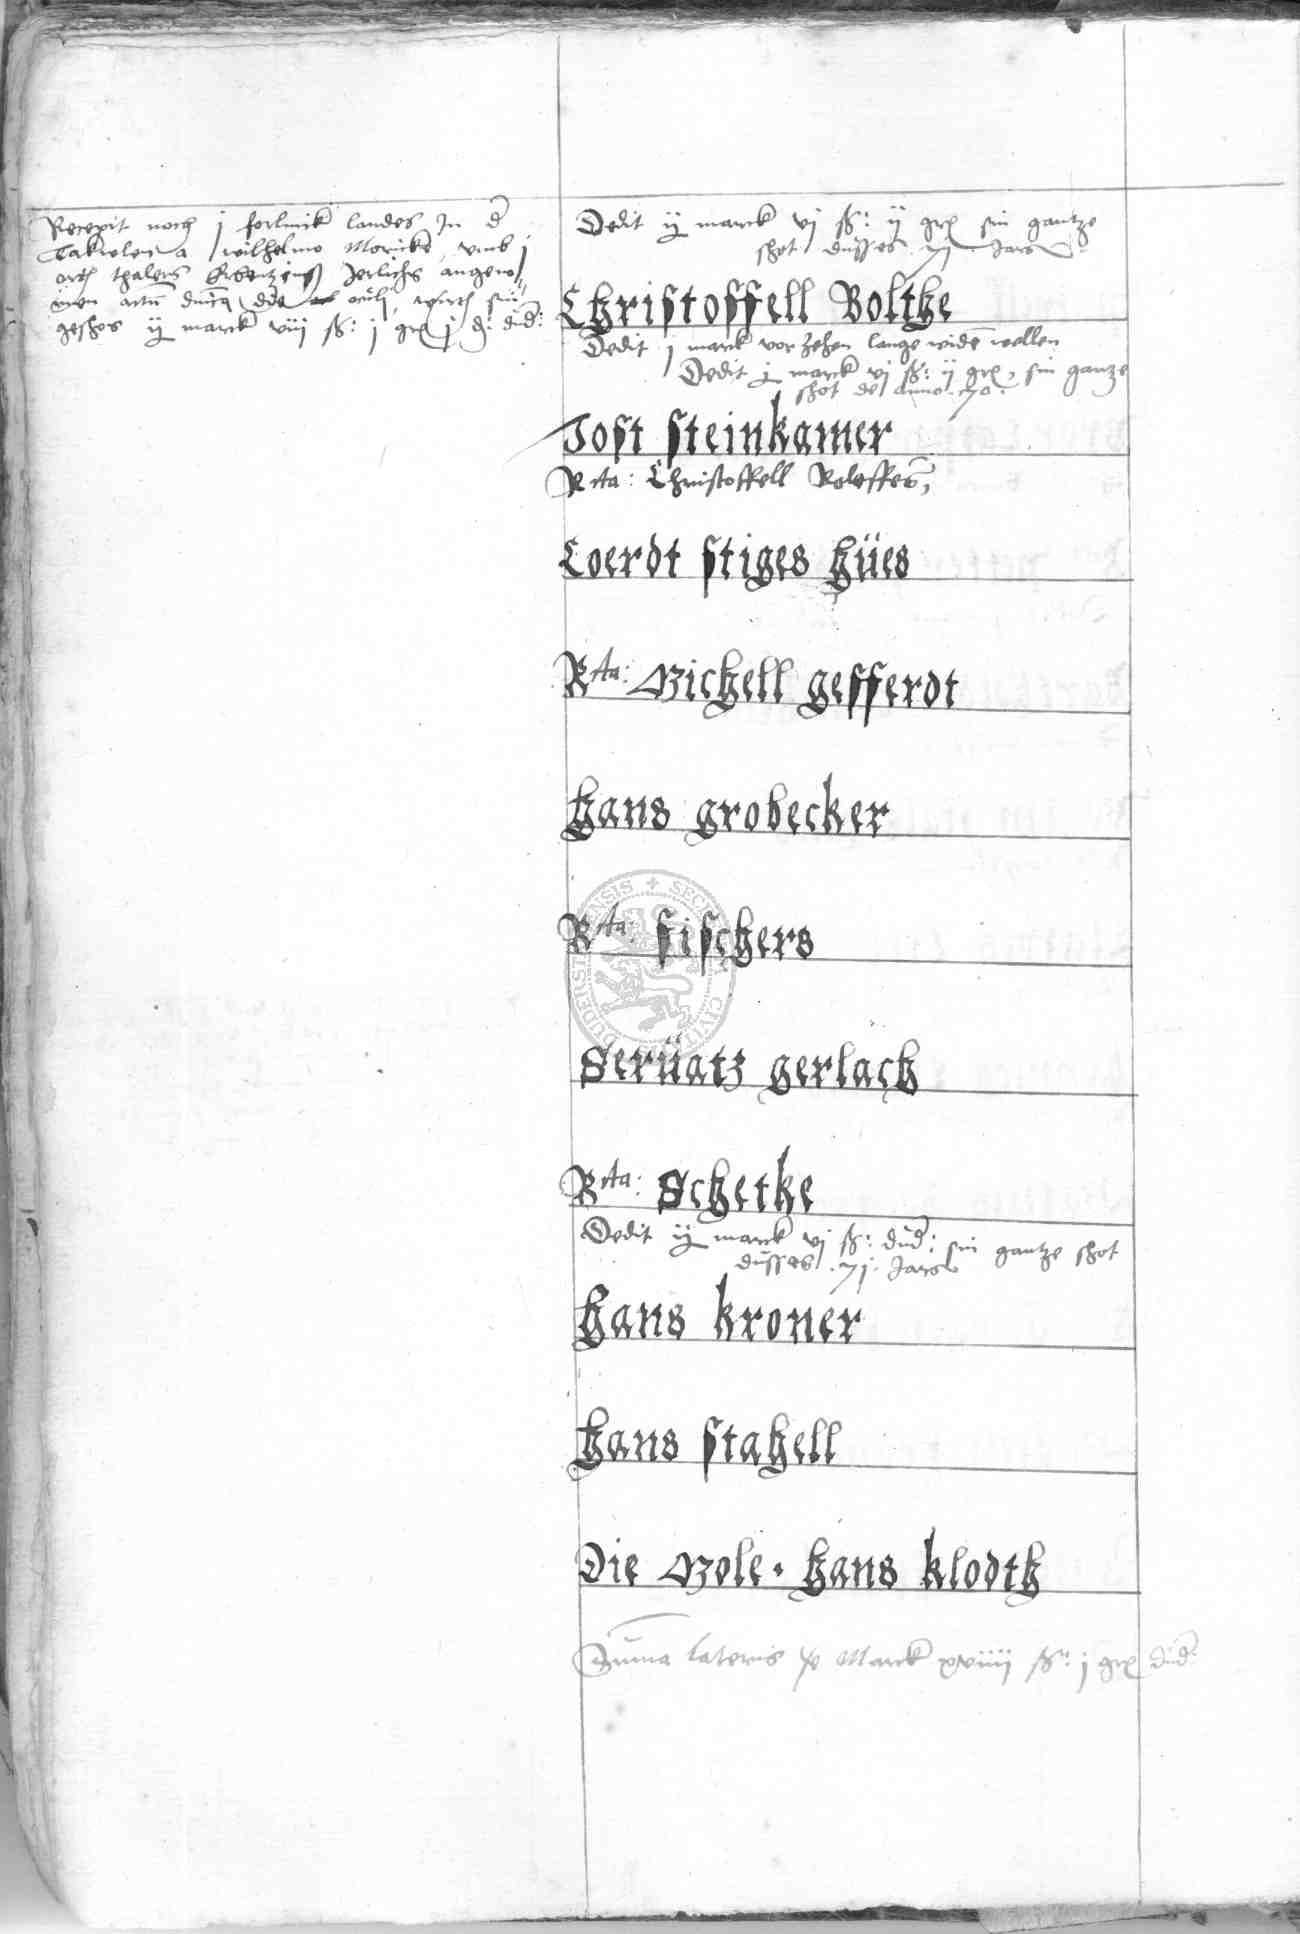 Recepit noch j forlinck landes In d
a wilhelmo Moricke, vmb j
orth thalers Jerlichs angeno
geschos ij marck viij ß: j gr j d: dud:
Dedit ij marck vj ß: ij gr sin gantze
shot dusses 71 Jars
Christoffell Bolthe
Dedit j marck vor zehen lange widen wellen
Dedit ij marck vj ß: ij gr, sin gantze
shot de anno 70.
Jost steinkamer
Rta: Christoffell Roleffes,
Coerdt stiges hües
Rta: Michell gefferdt
Hans grobecker
Rta: fischers
DUDERST ENSIS + SECR CIVITA
Serüatz gerlach
Rta: Schetke
Dedit ij marck vj ß: dud: sin gantze shot
dusses 71. Jars
Hans kroner
Hans stahell
Die Mole · Hans klodth
Suma lateris Marck xviiij ß: j gr dud: